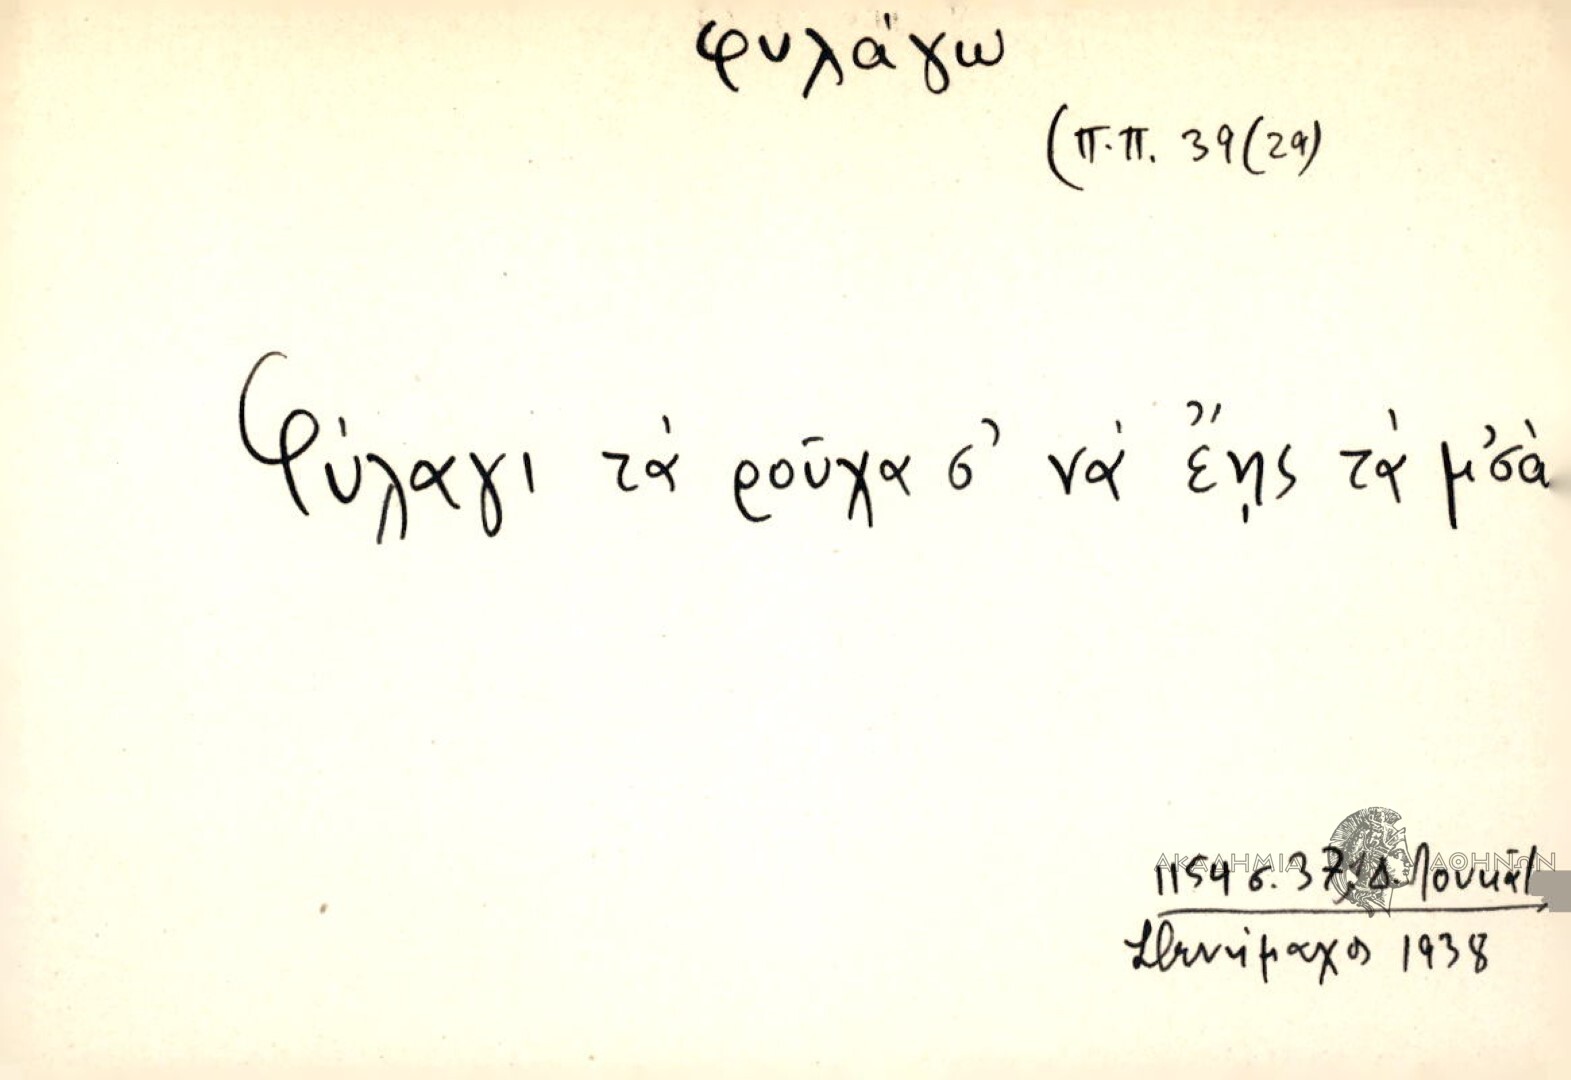 φυλάγω
(π.π. 39 (2α)
Φύλαγι τά ροῦχα σ' νά ἔῃς τά μ'σὰ
ΑΚΑΔΗΜΙΑ ΑΘΗΝΩΝ
1154 σ. 37, Δ. Λουκᾶ
Στενήμαχος 1938